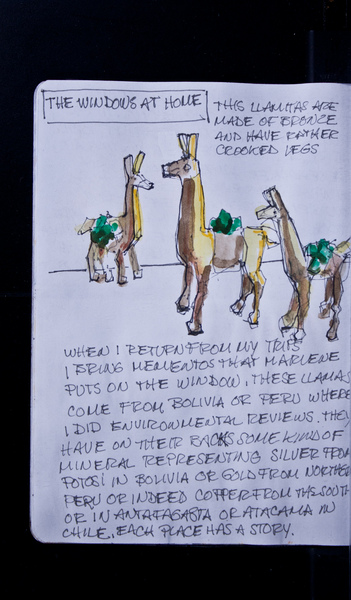 THE WINDOWS AT HOME
THIS LLAMITAS ARE
MADE OF BRONZE
AND HAVE RATHER
CROOKED LEGS
WHEN I RETURN FROM MY TRIPS
I BRING MEMENTOS THAT MARLENE
PUTS ON THE WINDOW, THESE LLAMAS
COME FROM BOLIVIA OR PERU WHERE
I DID ENVIRONMENTAL REVIEWS. THEY
HAVE ON THEIR BACKS SOME KIND OF
MINERAL REPRESENTING SILVER FROM
POTOSI IN BOLIVIA OR GOLD FROM NORTHERN
PERU OR INDEED COPPER FROM THE SOUTH
OR IN ANTAFAGASTA OR ATACAMA IN
CHILE. EACH PLACE HAS A STORY.